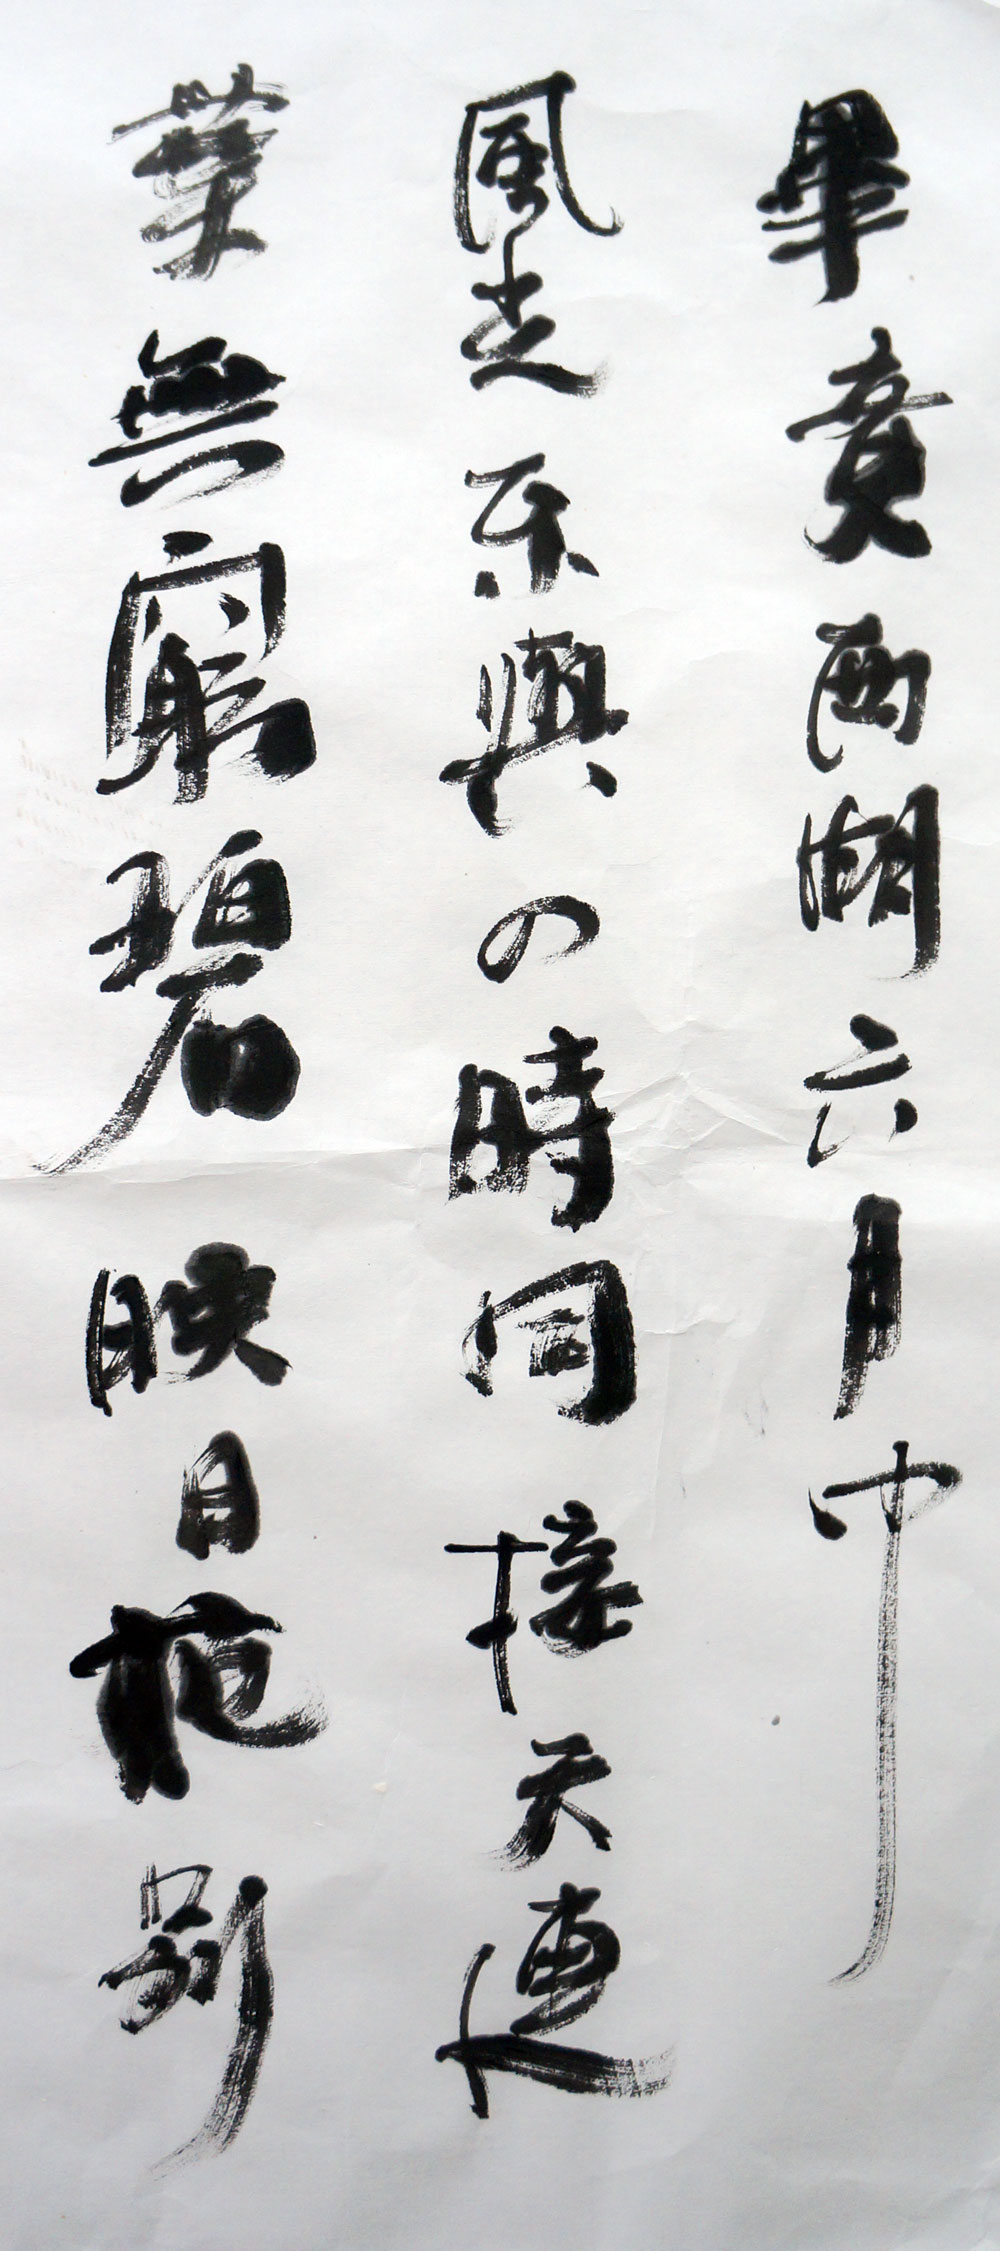 畢竟西湖六月中
風光不與四時同接天連
葉無窮碧映日荷別